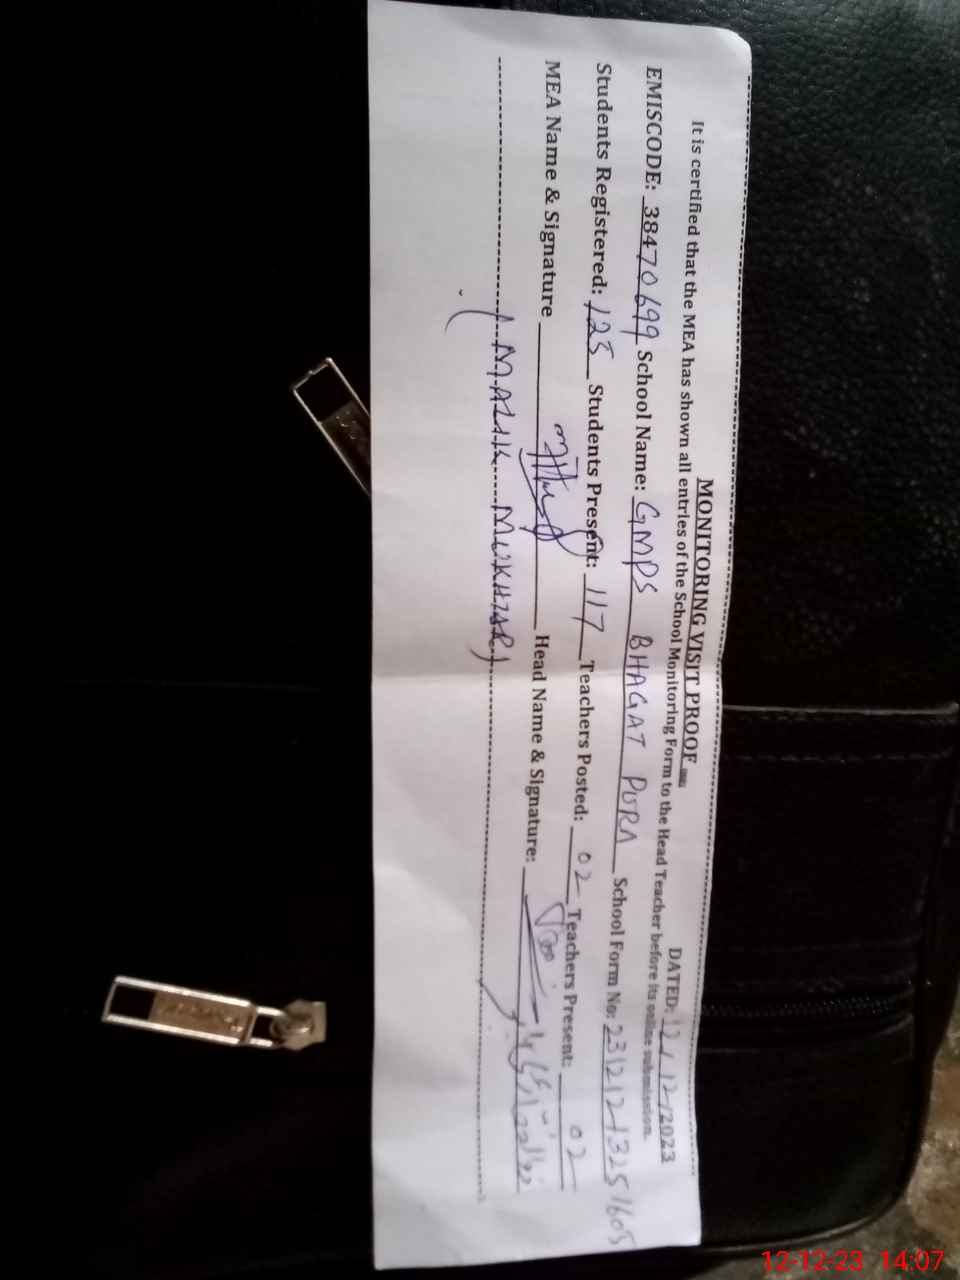 MONITORING VISIT PROOF
DATED: 12/12/2023
It is certified that the MEA has shown all entries of the School Monitoring Form to the Head Teacher before its online submission.
EMISCODE: 38470699 School Name: GMPS BHAGAT PURA School Form No: 23121213251605
Students Registered: 125 Students Present: 117 Teachers Posted: 02 Teachers Present: 02
MEA Name & Signature Head Name & Signature:
(MALIK MUKHTAR)
12-12-23 14:07